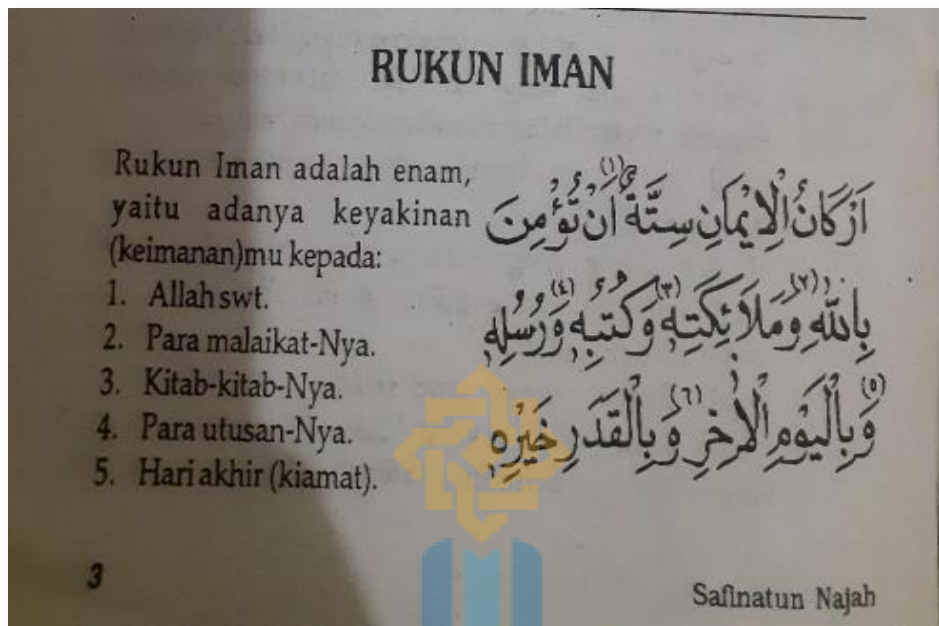 RUKUN IMAN
Rukun Iman adalah enam,
yaitu adanya keyakinan
(keimanan)mu kepada:
1. Allah swt.
2. Para malaikat-Nya.
3. Kitab-kitab-Nya.
4. Para utusan-Nya.
5. Hari akhir (kiamat).
اَرْكَانُ الْاِيْمَانِ سِتَّةٌ (١) اَنْ تُؤْمِنَ
بِاللّٰهِ (٢) وَمَلَائِكَتِهِ (٣) وَكُتُبِهِ (٤) وَرُسُلِهِ
(٥) وَبِالْيَوْمِ الْاٰخِرِ (٦) وَبِالْقَدَرِ خَيْرِهِ
3
Safinatun Najah